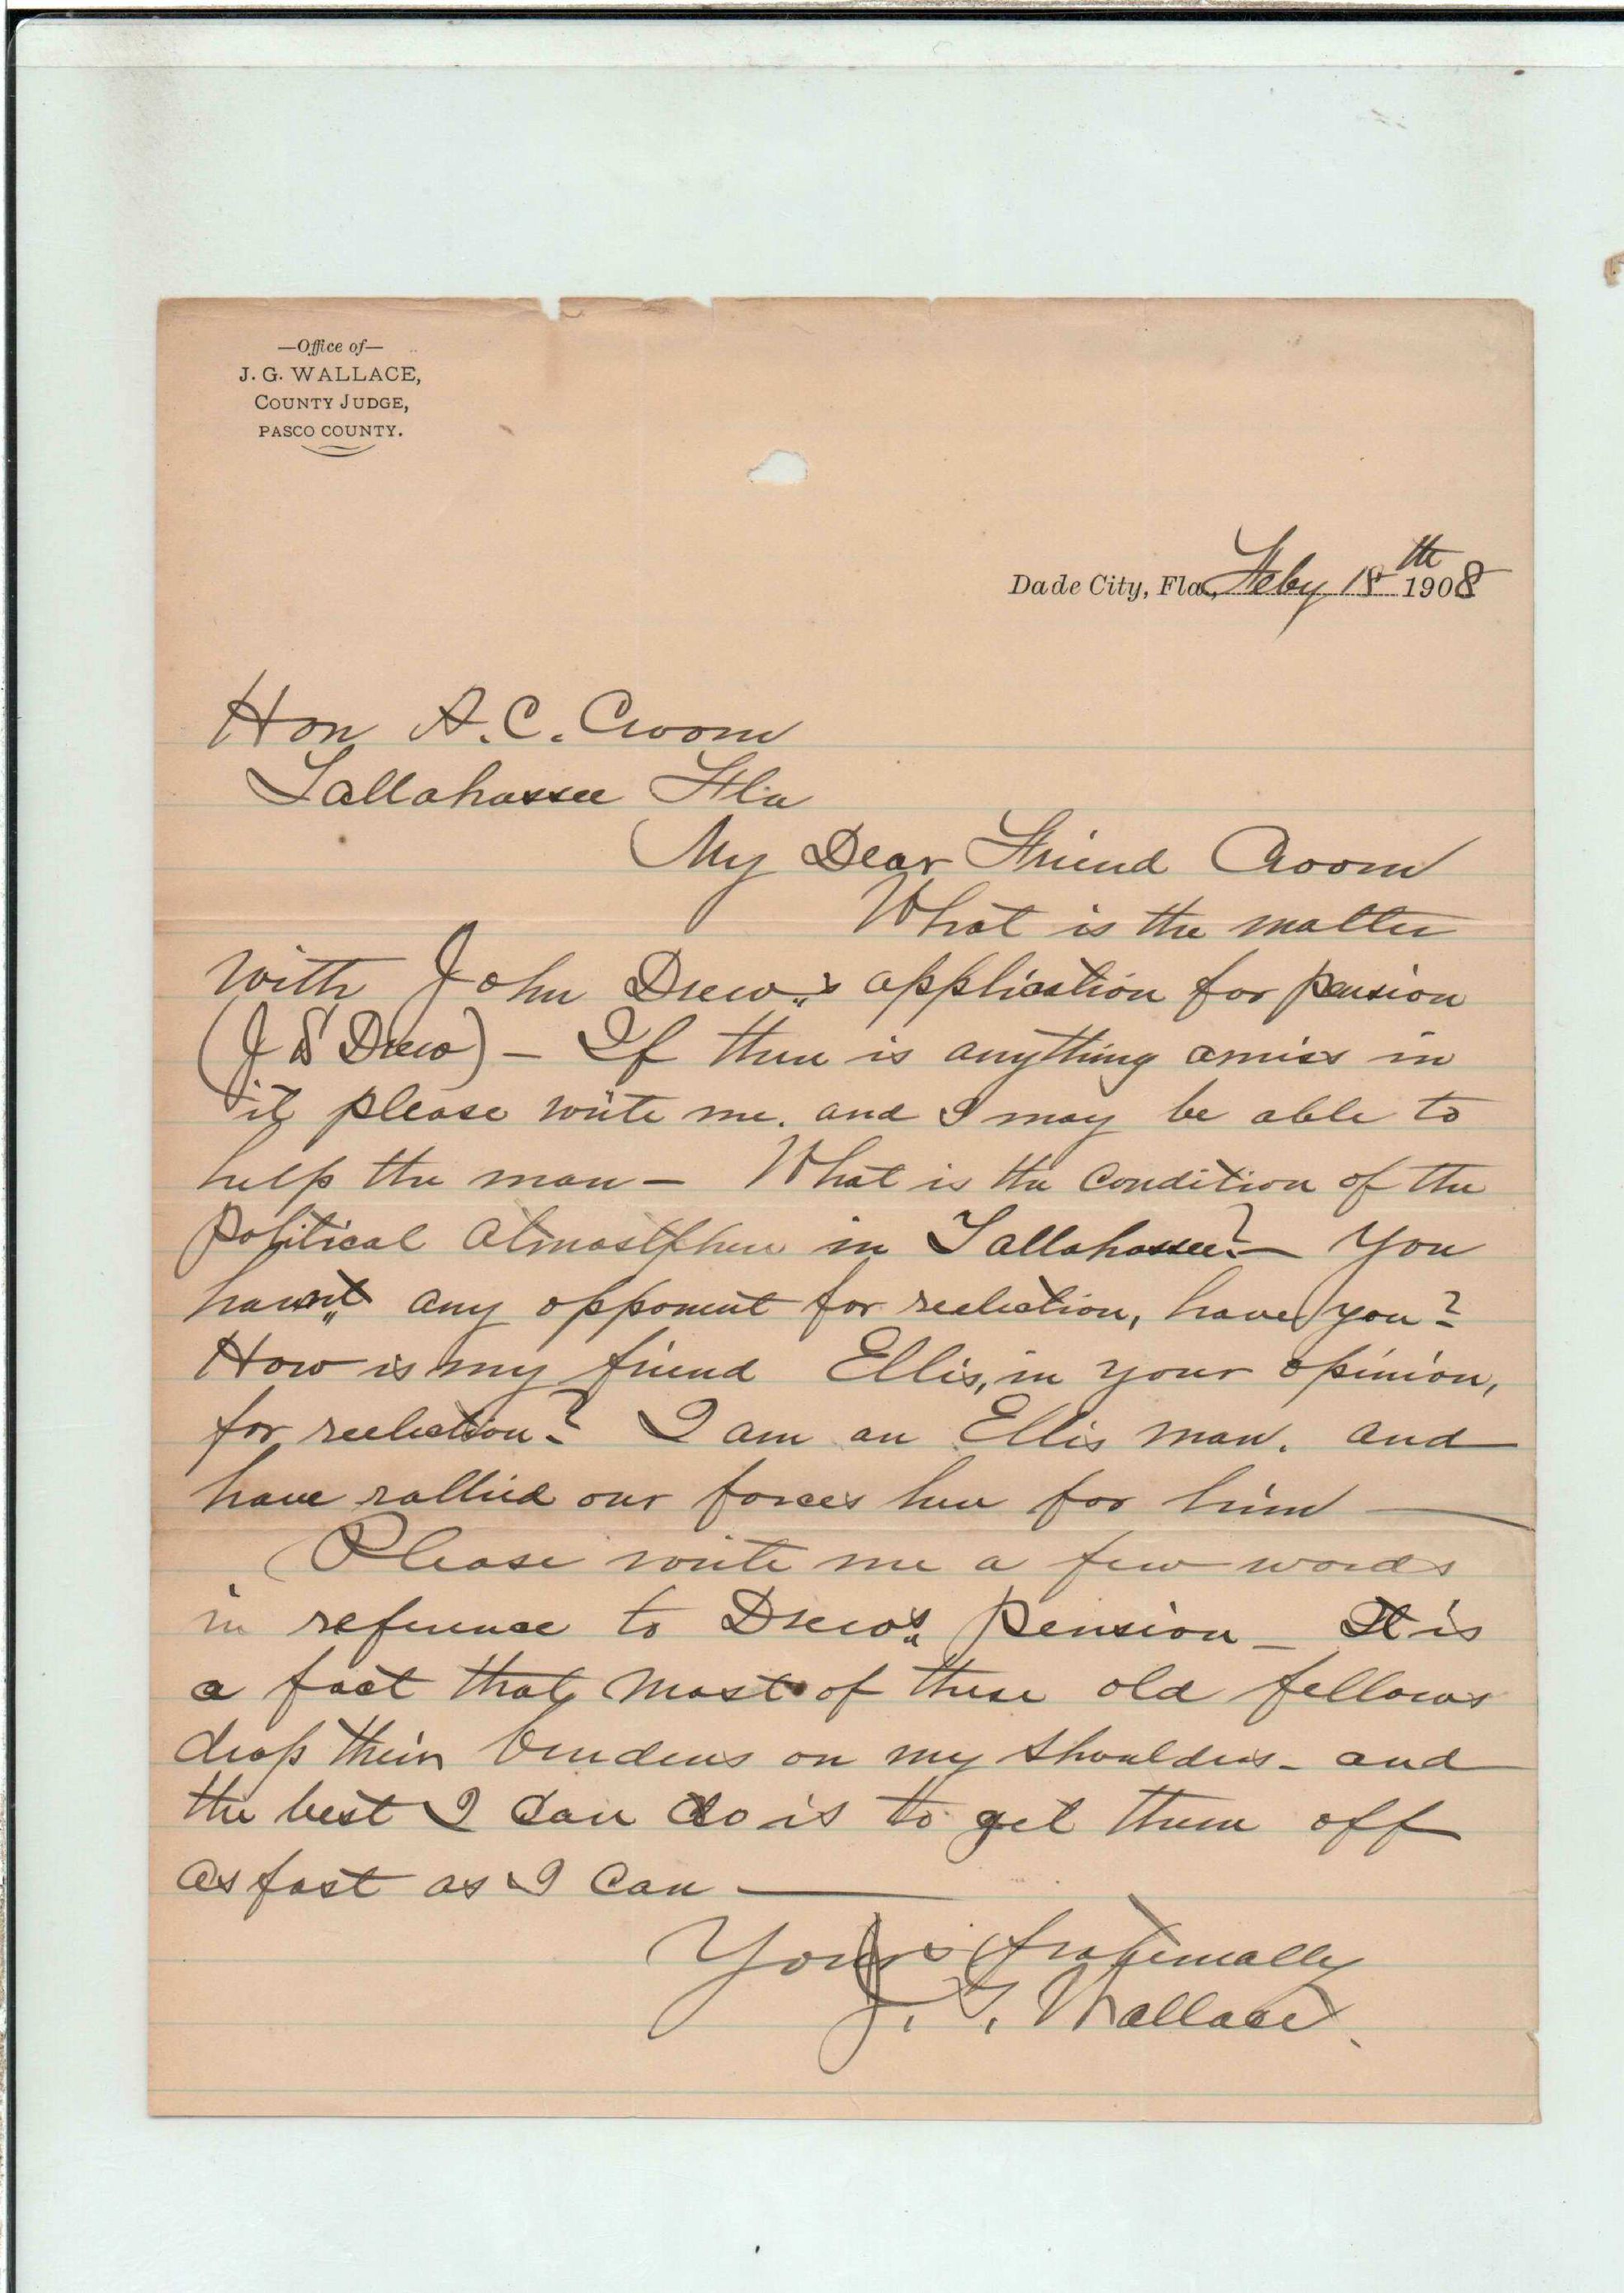 —Office of—
J. G. WALLACE,
COUNTY JUDGE,
PASCO COUNTY.
Dade City, Fla., Feby 18th 1908
Hon A. C. Croom
Tallahassee Fla
My Dear Friend Croom
What is the matter
with John Drew's application for pension
(J S Drew) – If there is anything amiss in
it please write me. and I may be able to
help the man – What is the condition of the
political atmostphere in Tallahassee? – You
havent any opponent for reelection, have you?
How is my friend Ellis, in your opinion,
for reelection? I am an Ellis man. and
have rallied our forces here for him —
Please write me a few words
in reference to Drew's pension – It is
a fact that most of these old fellows
drop their burdens on my shoulders – and
the best I can do is to get them off
as fast as I can —
Yours fraternally
J. G. Wallace.